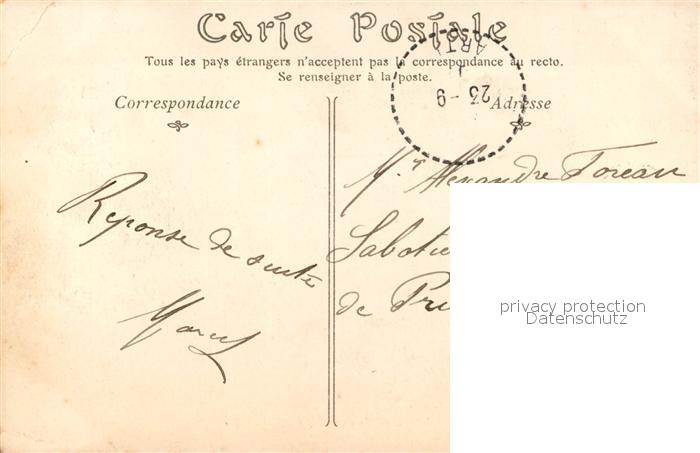 Carte Postale
Tous les pays étrangers n'acceptent pas la correspondance au recto.
Se renseigner à la poste.
Correspondance
Adresse
ART
23 - 9
Réponse de suite
Marcel
Mr Alexandre Toreau
Sabotie
de Pru
privacy protection
Datenschutz